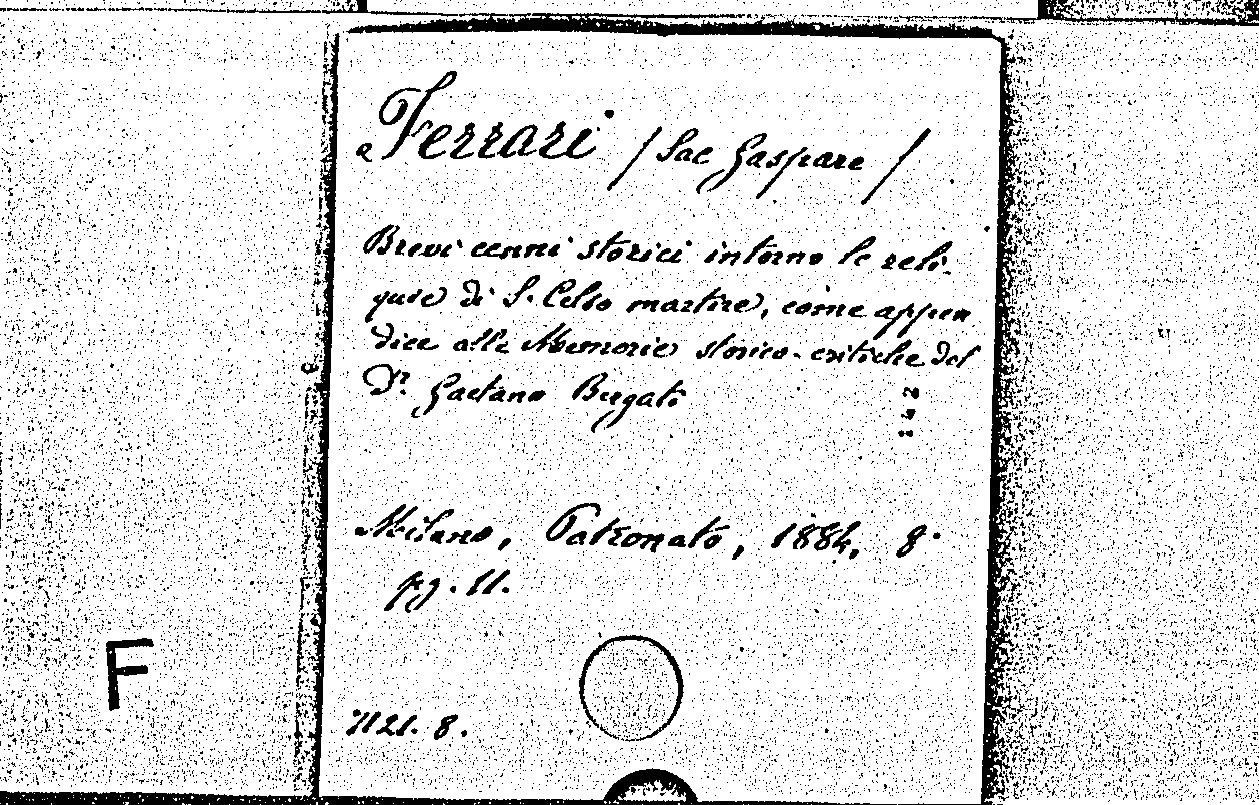 a Ferrari / Sac Gaspare /
Brevi cenni storici intorno le reli-
quie di S. Celso martire, come appen
dice alle Memorie storico-critiche del
Dr. Gaetano Bugato
142
Milano, Patronato, 1884, 8°
pg. 11.
F
7121. 8.